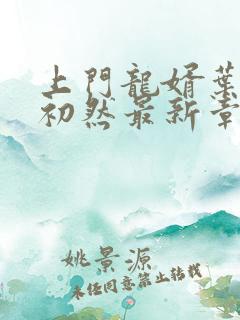 上門龍婿葉
初然最新章
姚景源
未任同意禁止转载